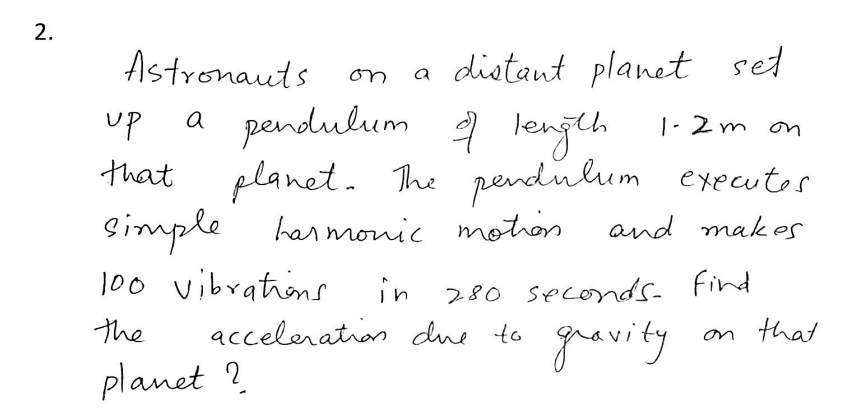 2.
Astronauts on a distant planet set
up a pendulum of length 1.2m on
that planet. The pendulum executes
simple harmonic motion and makes
100 vibrations in 280 seconds. Find
the acceleration due to gravity on that
planet ?